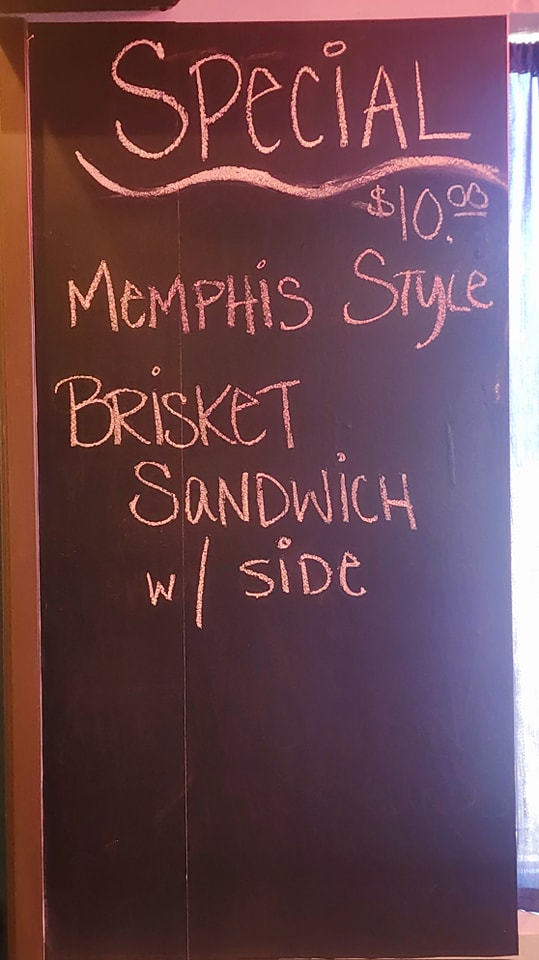 Special
$10.00
Memphis Style
Brisket
Sandwich
w/ side